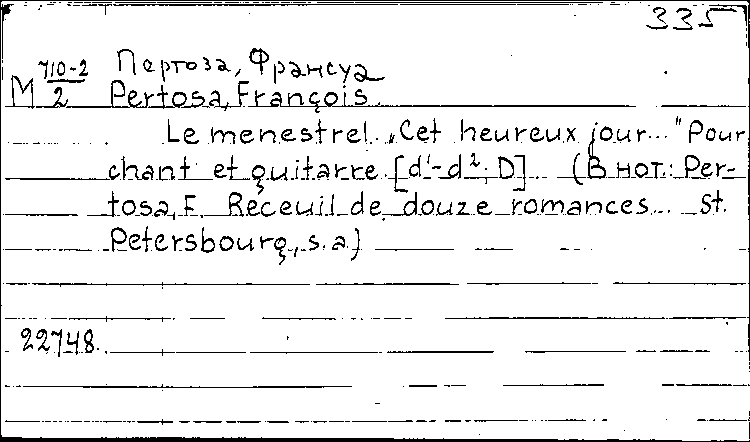 335
M 710-2/2 Пертоза, Франсуа
Pertosa, François.
Le menestrel. „Cet heureux jour..." Pour
chant et guitarre. [d¹-d²; D] (В нот.: Per-
tosa, F. Receuil de douze romances... St.
Petersbourg, s.a.)
22748.